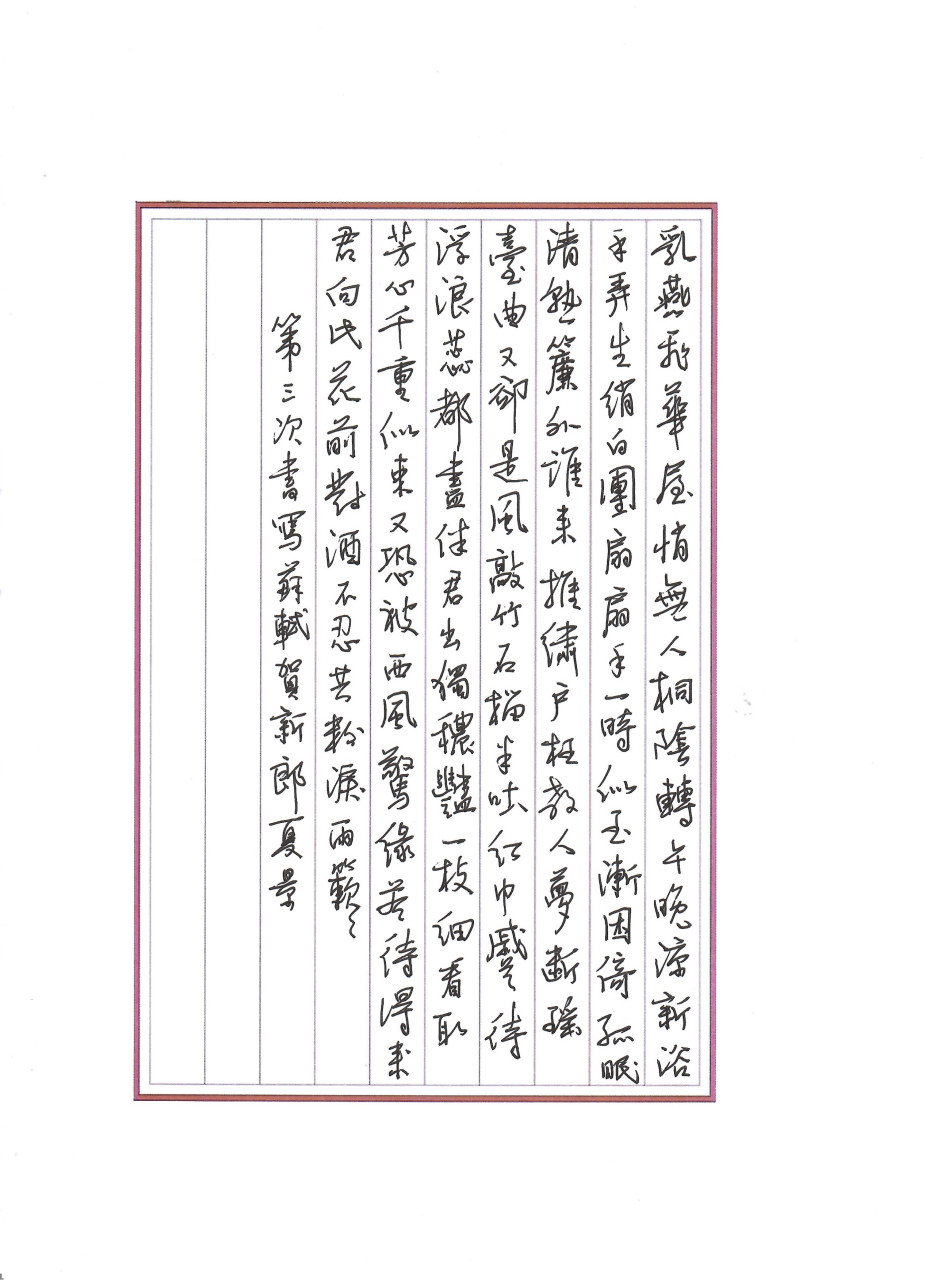 乳燕飛華屋悄無人桐陰轉午晚涼新浴
手弄生綃白團扇扇手一時似玉漸困倚孤眠
清熟簾外誰來推繡戶枉教人夢斷瑤
臺曲又卻是風敲竹石榴半吐紅巾蹙待
浮浪蕊都盡伴君幽獨穠豔一枝細看取
芳心千重似束又恐被西風驚綠若待得來
君向此花前對酒不忍共粉淚兩簌〻
第三次書寫蘇軾賀新郎夏景